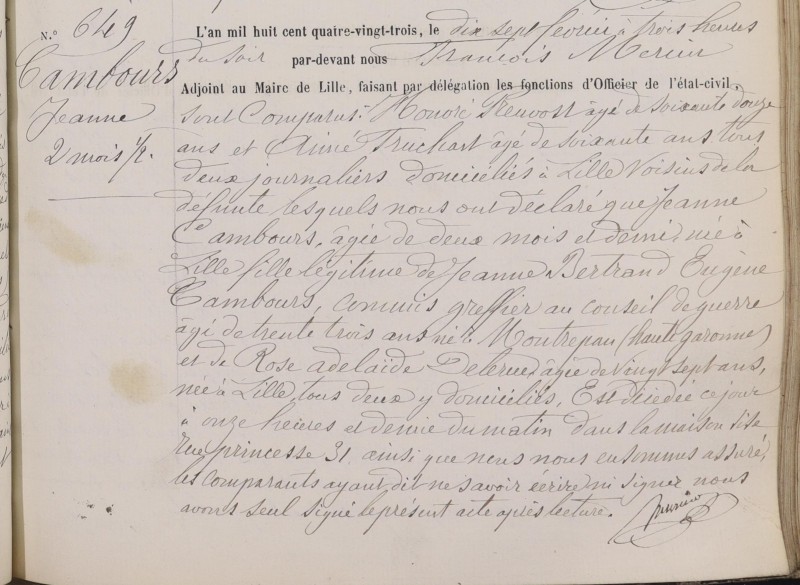 N.° 649
Cambours
Jeanne
2 mois 1/2.
L'an mil huit cent quatre-vingt-trois, le dix sept février à trois heures
du soir par-devant nous François Mercier
Adjoint au Maire de Lille, faisant par délégation les fonctions d'Officier de l'état-civil,
sont Comparus: Honoré Pleuvost âgé de soixante douze
ans et Aimé Truchart âgé de soixante ans, tous
deux journaliers domiciliés à Lille Voisins de la
défunte lesquels nous ont déclaré que Jeanne
Cambours, âgée de deux mois et demi, née à
Lille fille légitime de Jeanne Bertrand Eugène
Cambours, commis greffier au conseil de guerre
âgé de trente trois ans né à Montrepau (haute garonne)
et de Rose adelaïde Delerue, âgée de Vingt sept ans,
née à Lille, tous deux y domiciliés, Est décédée ce jour
à onze heures et demie du matin dans la maison sise
rue princesse 31 ainsi que nous nous en sommes assuré,
les comparants ayant dit ne savoir écrire ni signer nous
avons seul signé le présent acte après lecture.